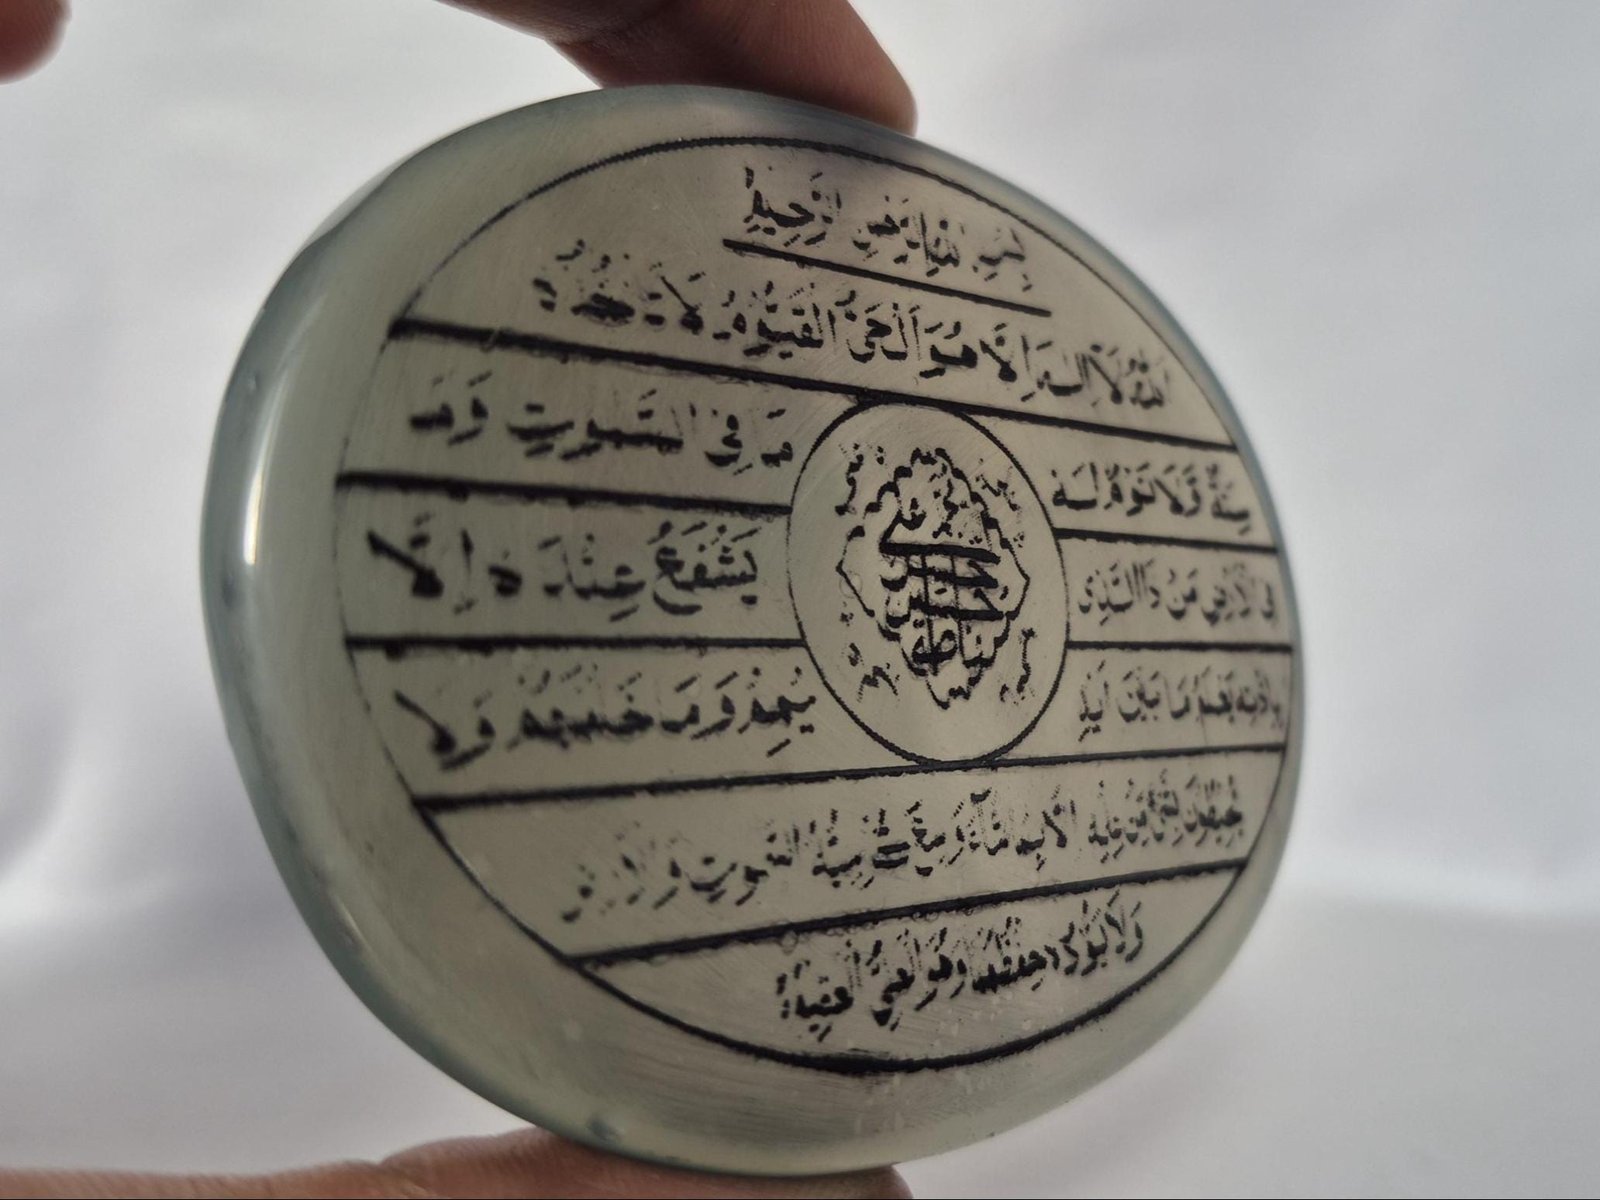 بِسْمِ اللهِ الرَّحْمنِ الرَّحِيمِ
اَللهُ لَا اِلهَ اِلَّا هُوَ اَلْحَىُّ الْقَيُّومُ لَا تَأْخُذُهُ
سِنَةٌ وَلَا نَوْمٌ لَهُ مَا فِى السَّموتِ وَمَا
فِى الْاَرْضِ مَنْ ذَا الَّذِى يَشْفَعُ عِنْدَهُ اِلَّا
بِاِذْنِه يَعْلَمُ مَا بَيْنَ اَيْدِ يْهِمْ وَمَا خَلْفَهُمْ وَلَا
يُحِيطُونَ بِشَىْءٍ مِنْ عِلْمِه اِلَّا بِمَا شَآءَ وَسِعَ كُرْسِيُّهُ السَّموتِ وَالْاَرْضَ
وَلَا يَؤُدُهُ حِفْظُهُمَا وَهُوَ الْعَلِىُّ الْعَظِيمُ
محمد علی
حسن
حسین
فاطمة